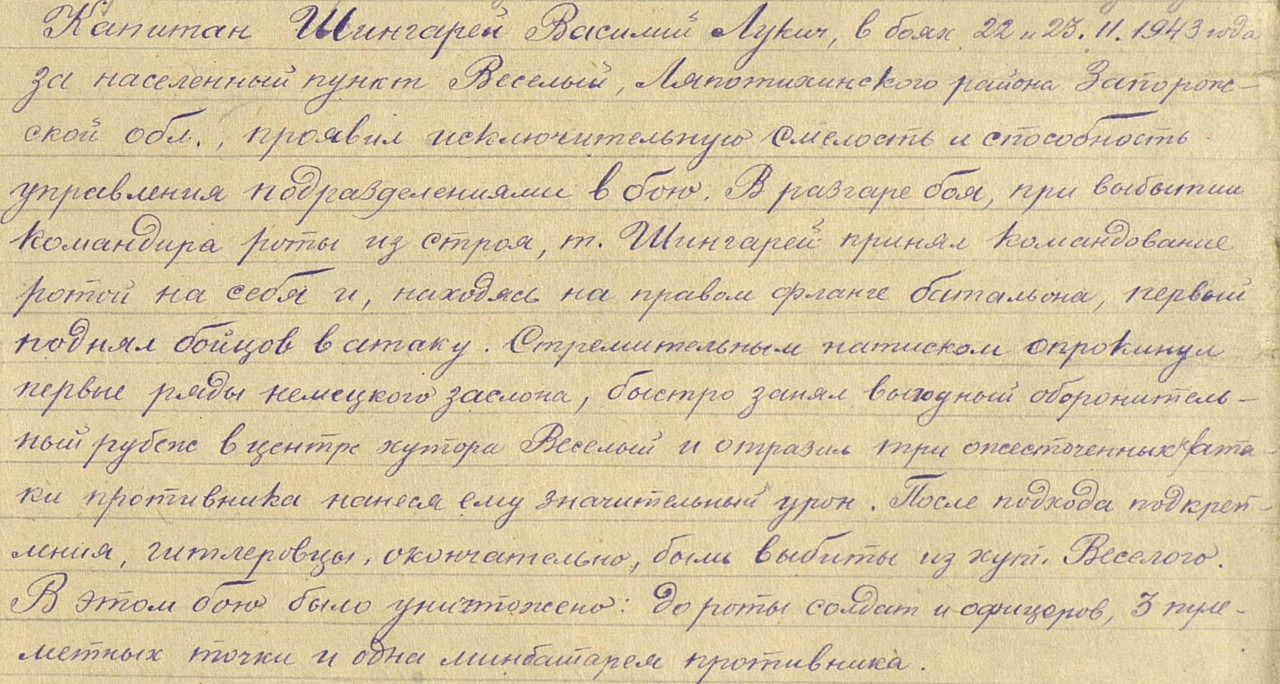 Капитан Шингарей Василий Лукич, в боях 22 и 23.11.1943 года
за населенный пункт Веселый, Ляпотихинского района Запорож-
ской обл., проявил исключительную смелость и способность
управления подразделениями в бою. В разгаре боя, при выбытии
командира роты из строя, т. Шингарей принял командование
ротой на себя и, находясь на правом фланге батальона, первый
поднял бойцов в атаку. Стремительным натиском опрокинул
первые ряды немецкого заслона, быстро занял выгодный оборонитель-
ный рубеж в центре хутора Веселый и отразил три ожесточенных ата-
ки противника нанеся ему значительный урон. После подхода подкреп-
ления, гитлеровцы, окончательно, были выбиты из хут. Веселого.
В этом бою было уничтожено: до роты солдат и офицеров, 3 пуле-
метных точки и одна минбатарея противника.